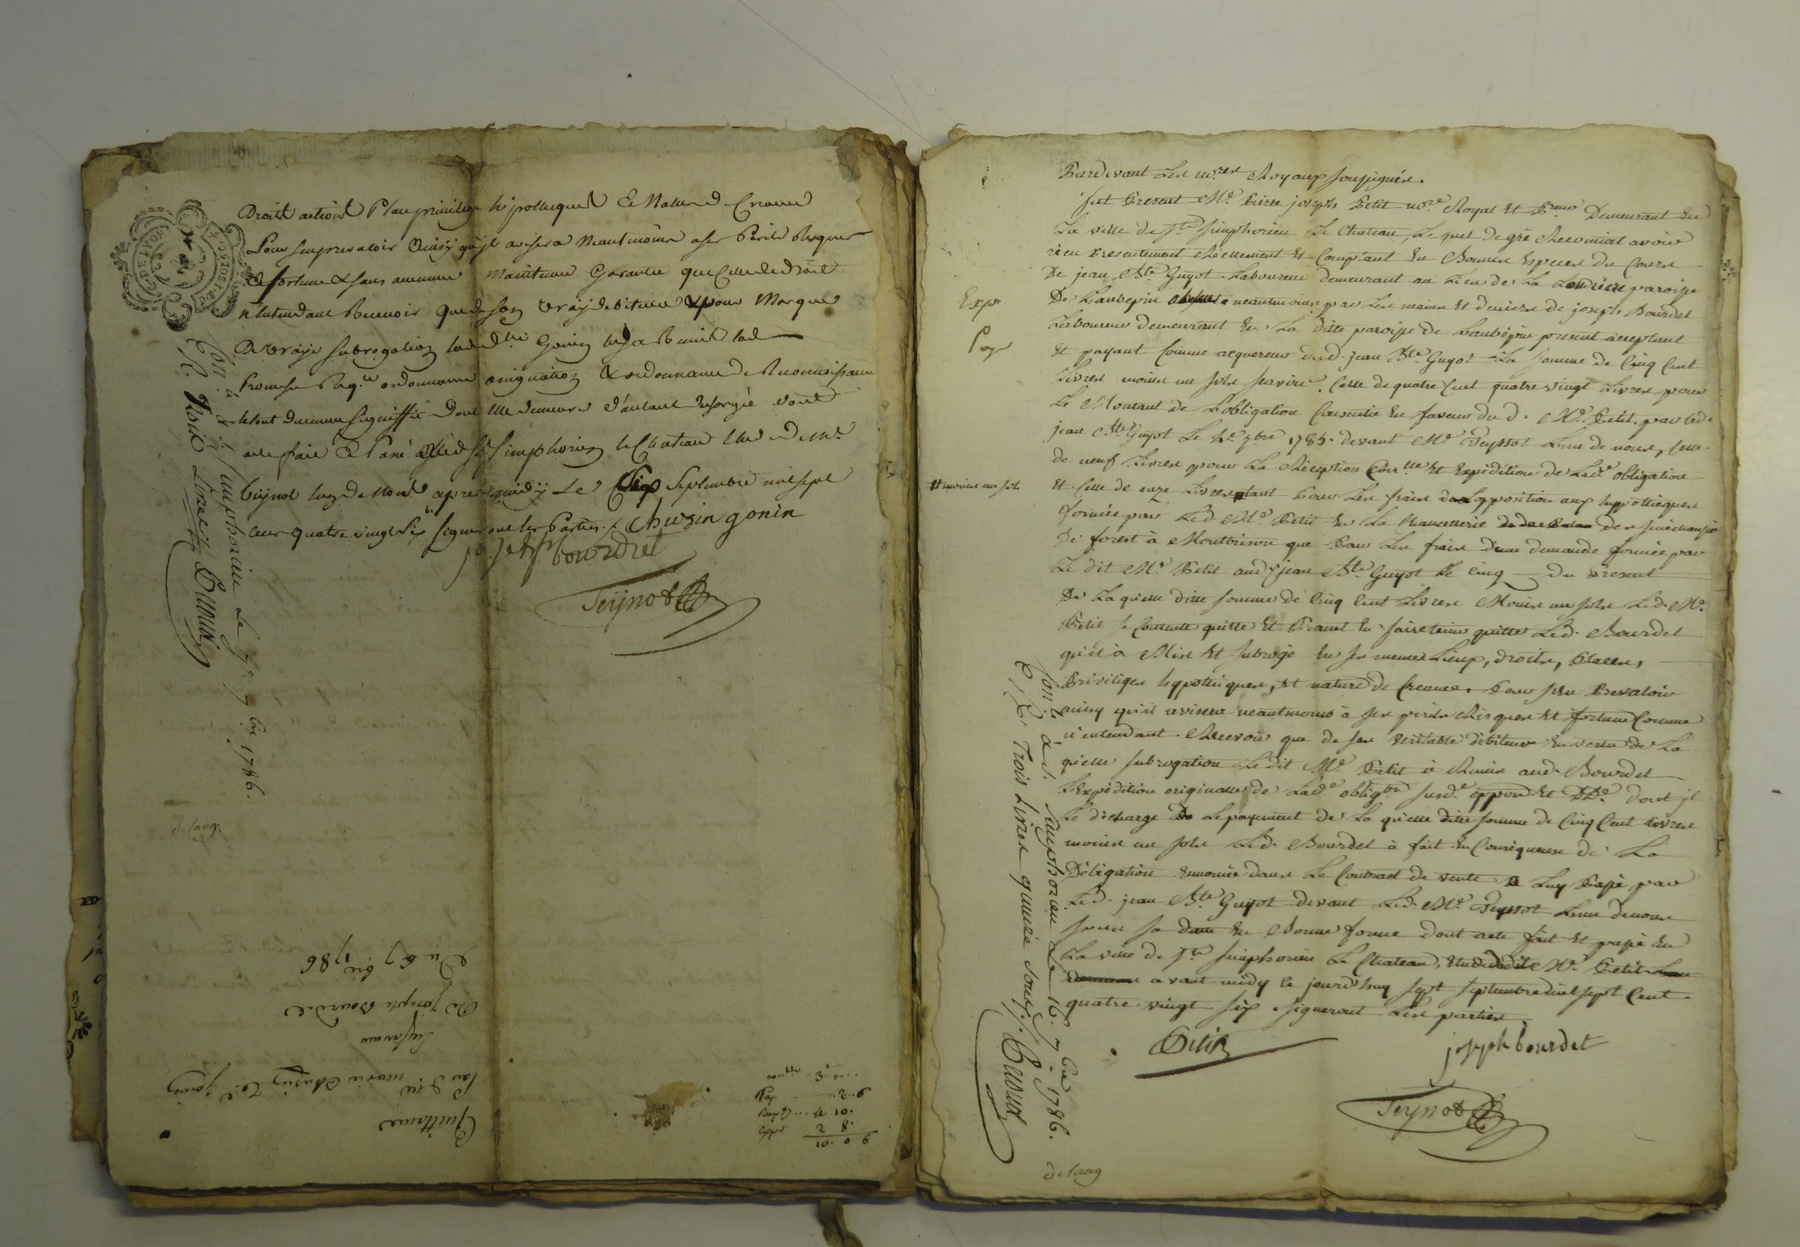 Droits actions Place privilege hipotheques & Nature de Creance
Pour sen prevaloir Ainsy qu'il avisera Neantmoins a ses Perils Risques
& fortune & sans aucune Maintenue Garantie que Celle de droit
N'entendant Recevoir que de son vray debiteur & pour Marque
De vraye subrogation lad. Gonin
Promesse Req.te ordonnance assignation & ordonnance de
le tout duement signiffié dont elle demeure d'autant dechargée dont
acte fait & Passé aud. St Simphorien le Chateau Etude de Me
Teijnot lun de Nous apres midy Le Six Septembre mil sept
Cent quatre vingt Six Signeront les Parties. / Chuzin gonin
joseph bourdet
Teijnot
Con.lé à St. Simphorien Le 7bre 1786.
R. Trois Livres
delaug.
Du 6 7bre 1786
A Joseph Bourdet
En faveur
Par D.lle marie Chuzin Ve. Gonin
Quittance
Pardevant Les no.res Royaux soussignés.
fut Present Me. Pierre joseph Petit no.re Royal Et Demeurant En
La ville de St. Simphorien Le Chateau, Lequel de gré Reconnoit avoir
recu Presentement Réellement Et Comptant En Bonnes Especes du Cours
De jean Bte Guyot Laboureur demeurant au Lieu de La paroisse
De Laubepin neantmoins par Les mains Et deniers de joseph Bourdet
Exp.
Laboureur demeurant En La ditte paroisse de Laubépin present acceptant
Et payant Comme acquereur dud. jean Bte. Guyot La somme de Cinq Cent
Livres moins un sols scavoir. Celle de quatre Cent quatre vingt Livres pour
Le Montant de Lobligation Consentie En faveur du d. Me. Petit par led.
jean Bte Guyot Le 7bre 1785. devant Me Teyssot Lun de nous, celle
de neuf Livres pour La Réception Con.lle Et Expédition de Lad.e obligation
# moins un sols
Et Celle de onze Livres # tant Pour Les frais de Lopposition aux hypottèques
formée par Led. Me. Petit En La Chancellerie de la Sénéchaussée
De forest à Montbrison que Pour Les frais d'une demande formée par
Le dit Me. Petit aud. jean Bte Guyot Le cinq du present
De La quelle ditte somme de Cinq Cent Livres Moins un sols Led. Me.
Petit se Contente quitte Et Promet En faire tenir quitte Led. Bourdet
qu'il a Mis Et subrogé En ses memes Lieux, droits, Places,
Priviléges hypottèques, Et nature de Creance Pour s'En Prevaloir
ainsy qu'il avisera neantmoins à ses perils Risques Et fortune Comme
n'entendant Recevoir que de son véritable débiteur En vertu de La
quelle subrogation Le dit Me. Petit a Remis aud. Bourdet
L'Expédition originalle de Lad.e oblig.on dont il
Le décharge Le payement de La quelle ditte somme de Cinq Cent Livres
moins un sols Led. Bourdet à fait En Conséquence de La
Délégation Ennoncée dans Le Contract de vente à Luy Passé par
Led. jean Bte Guyot devant Led. Me. Teyssot Lun de nous
sous sa datte En Bonne forme dont acte fait Et passé En
La ville de St. Simphorien Le Chateau, Etude dudit Me. Petit
avant midy le jourd'huy sept septembre mil sept Cent
quatre vingt six. signeront Les parties
Petit
joseph bourdet
Teijnot
Con.lé à St. Simphorien Le 16. 7bre 1786.
R. Trois Livres quinze sous.
delaug